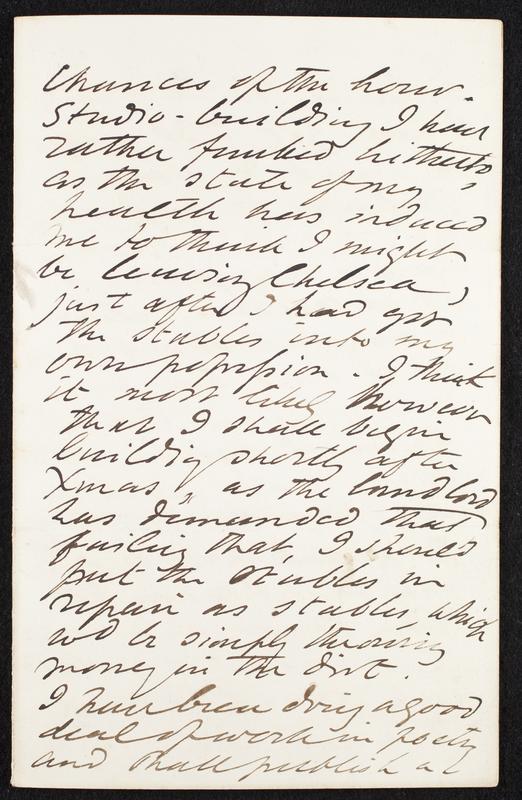 chances of the hour.
Studio-building I have
rather funked hitherto,
as the state of my
health has induced
me to think I might
be leaving Chelsea,
just after I had got
the stables into my
own possession. I think
it most likely however
that I shall begin
building shortly after
Xmas, as the landlord
has demanded that
failing that, I should
put the stables in
repair as stables, which
wd be simply throwing
money in the dirt.
I have been doing a good
deal of work in poetry
and shall publish a